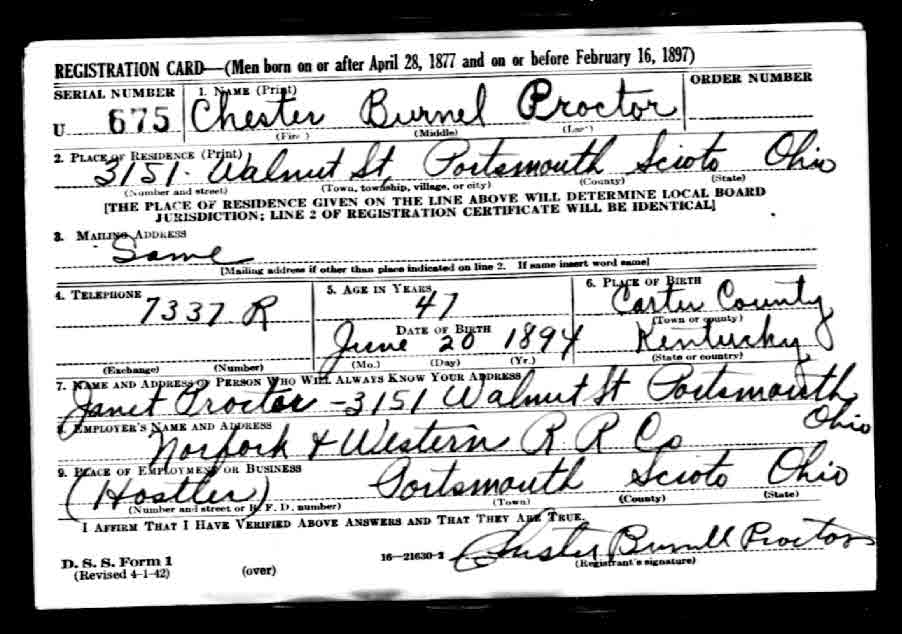 REGISTRATION CARD—(Men born on or after April 28, 1877 and on or before February 16, 1897)
SERIAL NUMBER 1. NAME (Print) ORDER NUMBER
U 675 Chester Burnel Proctor
(First) (Middle) (Last)
2. PLACE OF RESIDENCE (Print)
3151 Walnut St, Portsmouth Scioto Ohio
(Number and street) (Town, township, village, or city) (County) (State)
[THE PLACE OF RESIDENCE GIVEN ON THE LINE ABOVE WILL DETERMINE LOCAL BOARD
JURISDICTION; LINE 2 OF REGISTRATION CERTIFICATE WILL BE IDENTICAL]
3. MAILING ADDRESS
Same
[Mailing address if other than place indicated on line 2. If same insert word same]
4. TELEPHONE 5. AGE IN YEARS 6. PLACE OF BIRTH
7337 R 47 Carter County
DATE OF BIRTH (Town or county)
June 20 1894 Kentucky
(Exchange) (Number) (Mo.) (Day) (Yr.) (State or country)
7. NAME AND ADDRESS OF PERSON WHO WILL ALWAYS KNOW YOUR ADDRESS
Janet Proctor - 3151 Walnut St Portsmouth
Ohio
8. EMPLOYER'S NAME AND ADDRESS
Norfork & Western R R Co
9. PLACE OF EMPLOYMENT OR BUSINESS
(Hostler) Portsmouth Scioto Ohio
(Number and street or R. F. D. number) (Town) (County) (State)
I AFFIRM THAT I HAVE VERIFIED ABOVE ANSWERS AND THAT THEY ARE TRUE.
Chester Burnell Proctor
D. S. S. Form 1 16—21630-2 (Registrant's signature)
(Revised 4-1-42) (over)